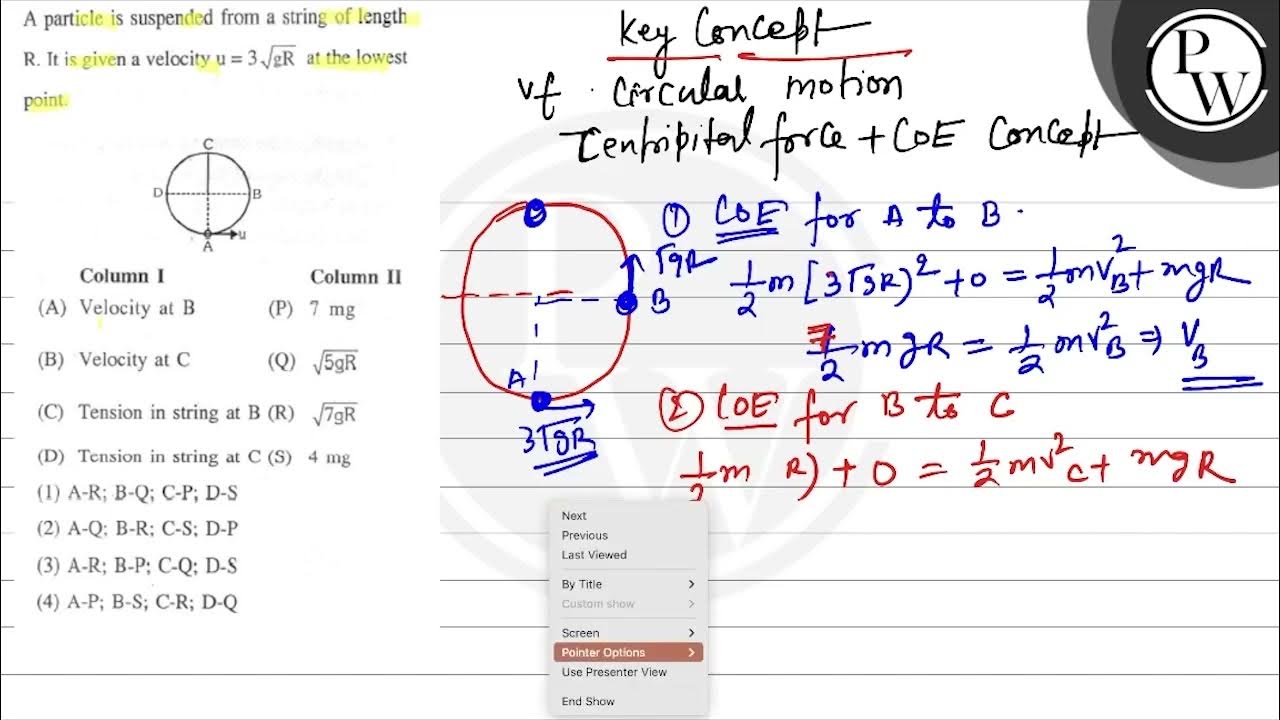 A particle is suspended from a string of length
R. It is given a velocity u = 3√gR at the lowest
point.
C
D
B
A
u
Column I Column II
(A) Velocity at B (P) 7 mg
(B) Velocity at C (Q) √5gR
(C) Tension in string at B (R) √7gR
(D) Tension in string at C (S) 4 mg
(1) A-R; B-Q; C-P; D-S
(2) A-Q; B-R; C-S; D-P
(3) A-R; B-P; C-Q; D-S
(4) A-P; B-S; C-R; D-Q
Key Concept
Vf . Circular motion
Centripital force + COE Concept
PW
① COE for A to B.
√gR
B
A
3√gR
1/2 m [3√gR)² + 0 = 1/2 mV_B² + mgR
7/2 mgR = 1/2 mV_B² ⇒ V_B
② COE for B to C
1/2 m R) + 0 = 1/2 mv²_C + mgR
Next
Previous
Last Viewed
By Title
Custom show
Screen
Pointer Options
Use Presenter View
End Show